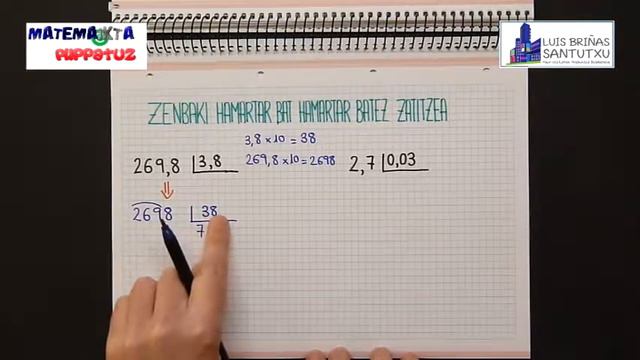 MATEMAIXTA
PUPPETUZ
LUIS BRIÑAS
SANTUTXU
ZENBAKI HAMARTAR BAT HAMARTAR BATEZ ZATITZEA
3,8 × 10 = 38
269,8 3,8
269,8 × 10 = 2698
2,7 0,03
2698 38
7